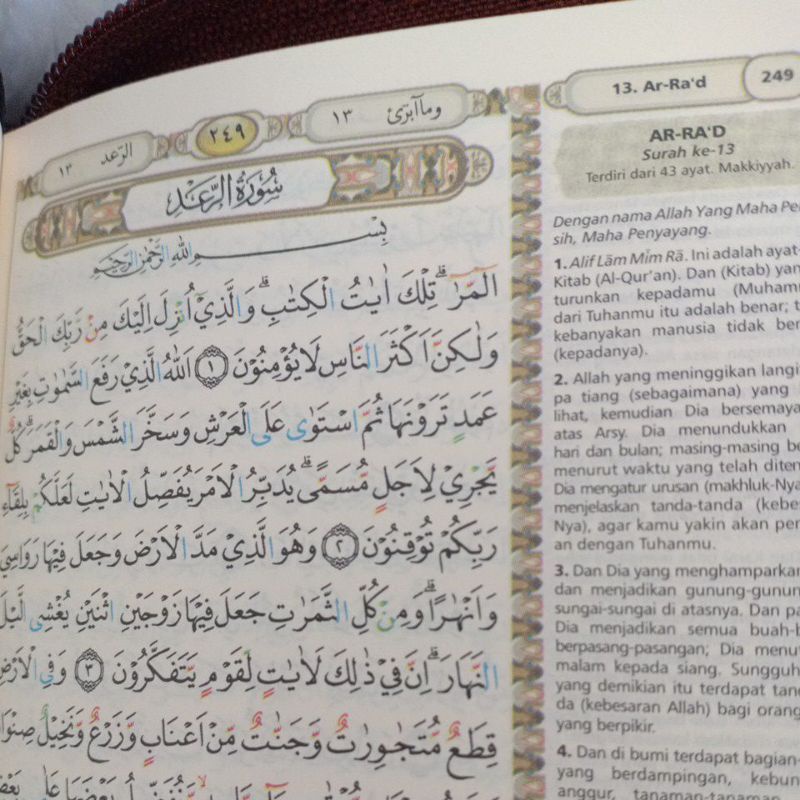 الرّعد ١٣
٢٤٩
وماۤ ابرّئ ١٣
سُوْرَةُ الرَّعْدِ
بِسْمِ اللّٰهِ الرَّحْمٰنِ الرَّحِيْمِ
الۤمّۤرٰۗ تِلْكَ اٰيٰتُ الْكِتٰبِۗ وَالَّذِيْٓ اُنْزِلَ اِلَيْكَ مِنْ رَّبِّكَ الْحَقُّ
وَلٰكِنَّ اَكْثَرَ النَّاسِ لَا يُؤْمِنُوْنَ ١ اَللّٰهُ الَّذِيْ رَفَعَ السَّمٰوٰتِ بِغَيْرِ
عَمَدٍ تَرَوْنَهَا ثُمَّ اسْتَوٰى عَلَى الْعَرْشِ وَسَخَّرَ الشَّمْسَ وَالْقَمَرَۗ كُلٌّ
يَّجْرِيْ لِاَجَلٍ مُّسَمًّىۗ يُدَبِّرُ الْاَمْرَ يُفَصِّلُ الْاٰيٰتِ لَعَلَّكُمْ بِلِقَاۤءِ
رَبِّكُمْ تُوْقِنُوْنَ ٢ وَهُوَ الَّذِيْ مَدَّ الْاَرْضَ وَجَعَلَ فِيْهَا رَوَاسِيَ
وَاَنْهٰرًاۗ وَمِنْ كُلِّ الثَّمَرٰتِ جَعَلَ فِيْهَا زَوْجَيْنِ اثْنَيْنِ يُغْشِى الَّيْلَ
النَّهَارَۗ اِنَّ فِيْ ذٰلِكَ لَاٰيٰتٍ لِّقَوْمٍ يَّتَفَكَّرُوْنَ ٣ وَفِى الْاَرْضِ
قِطَعٌ مُّتَجٰوِرٰتٌ وَّجَنّٰتٌ مِّنْ اَعْنَابٍ وَّزَرْعٌ وَّنَخِيْلٌ صِنْوَا
13. Ar-Ra'd
249
AR-RA'D
Surah ke-13
Terdiri dari 43 ayat. Makkiyyah.
Dengan nama Allah Yang Maha Pe
sih, Maha Penyayang.
1. Alif Lām Mīm Rā. Ini adalah ayat-
Kitab (Al-Qur'an). Dan (Kitab) yan
turunkan kepadamu (Muhamm
dari Tuhanmu itu adalah benar; t
kebanyakan manusia tidak ber
(kepadanya).
2. Allah yang meninggikan langi
pa tiang (sebagaimana) yang
lihat, kemudian Dia bersemaya
atas Arsy. Dia menundukkan
hari dan bulan; masing-masing be
menurut waktu yang telah diten
Dia mengatur urusan (makhluk-Nya
menjelaskan tanda-tanda (kebe
Nya), agar kamu yakin akan per
an dengan Tuhanmu.
3. Dan Dia yang menghamparkan
dan menjadikan gunung-gunun
sungai-sungai di atasnya. Dan pa
Dia menjadikan semua buah-b
berpasang-pasangan; Dia menut
malam kepada siang. Sungguh
yang demikian itu terdapat tan
da (kebesaran Allah) bagi orang
yang berpikir.
4. Dan di bumi terdapat bagian-
yang berdampingan, kebun
anggur, tanaman-tanaman